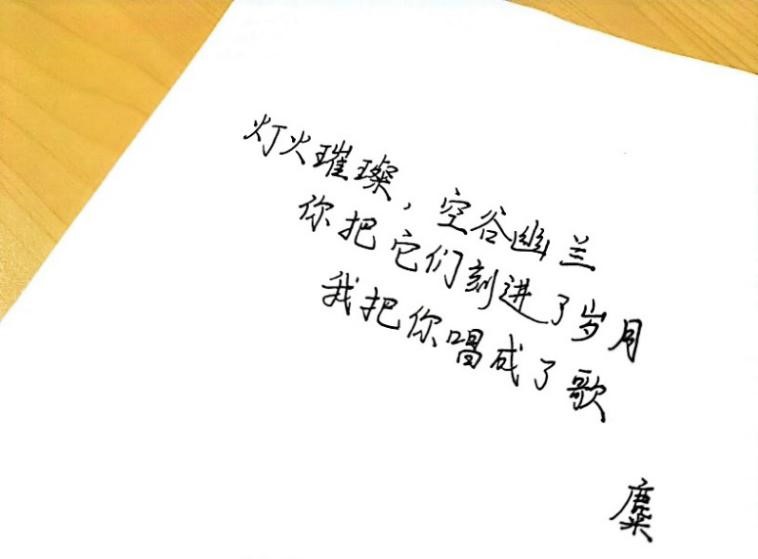 灯火璀璨，空谷幽兰
你把它们刻进了岁月
我把你唱成了歌
糜